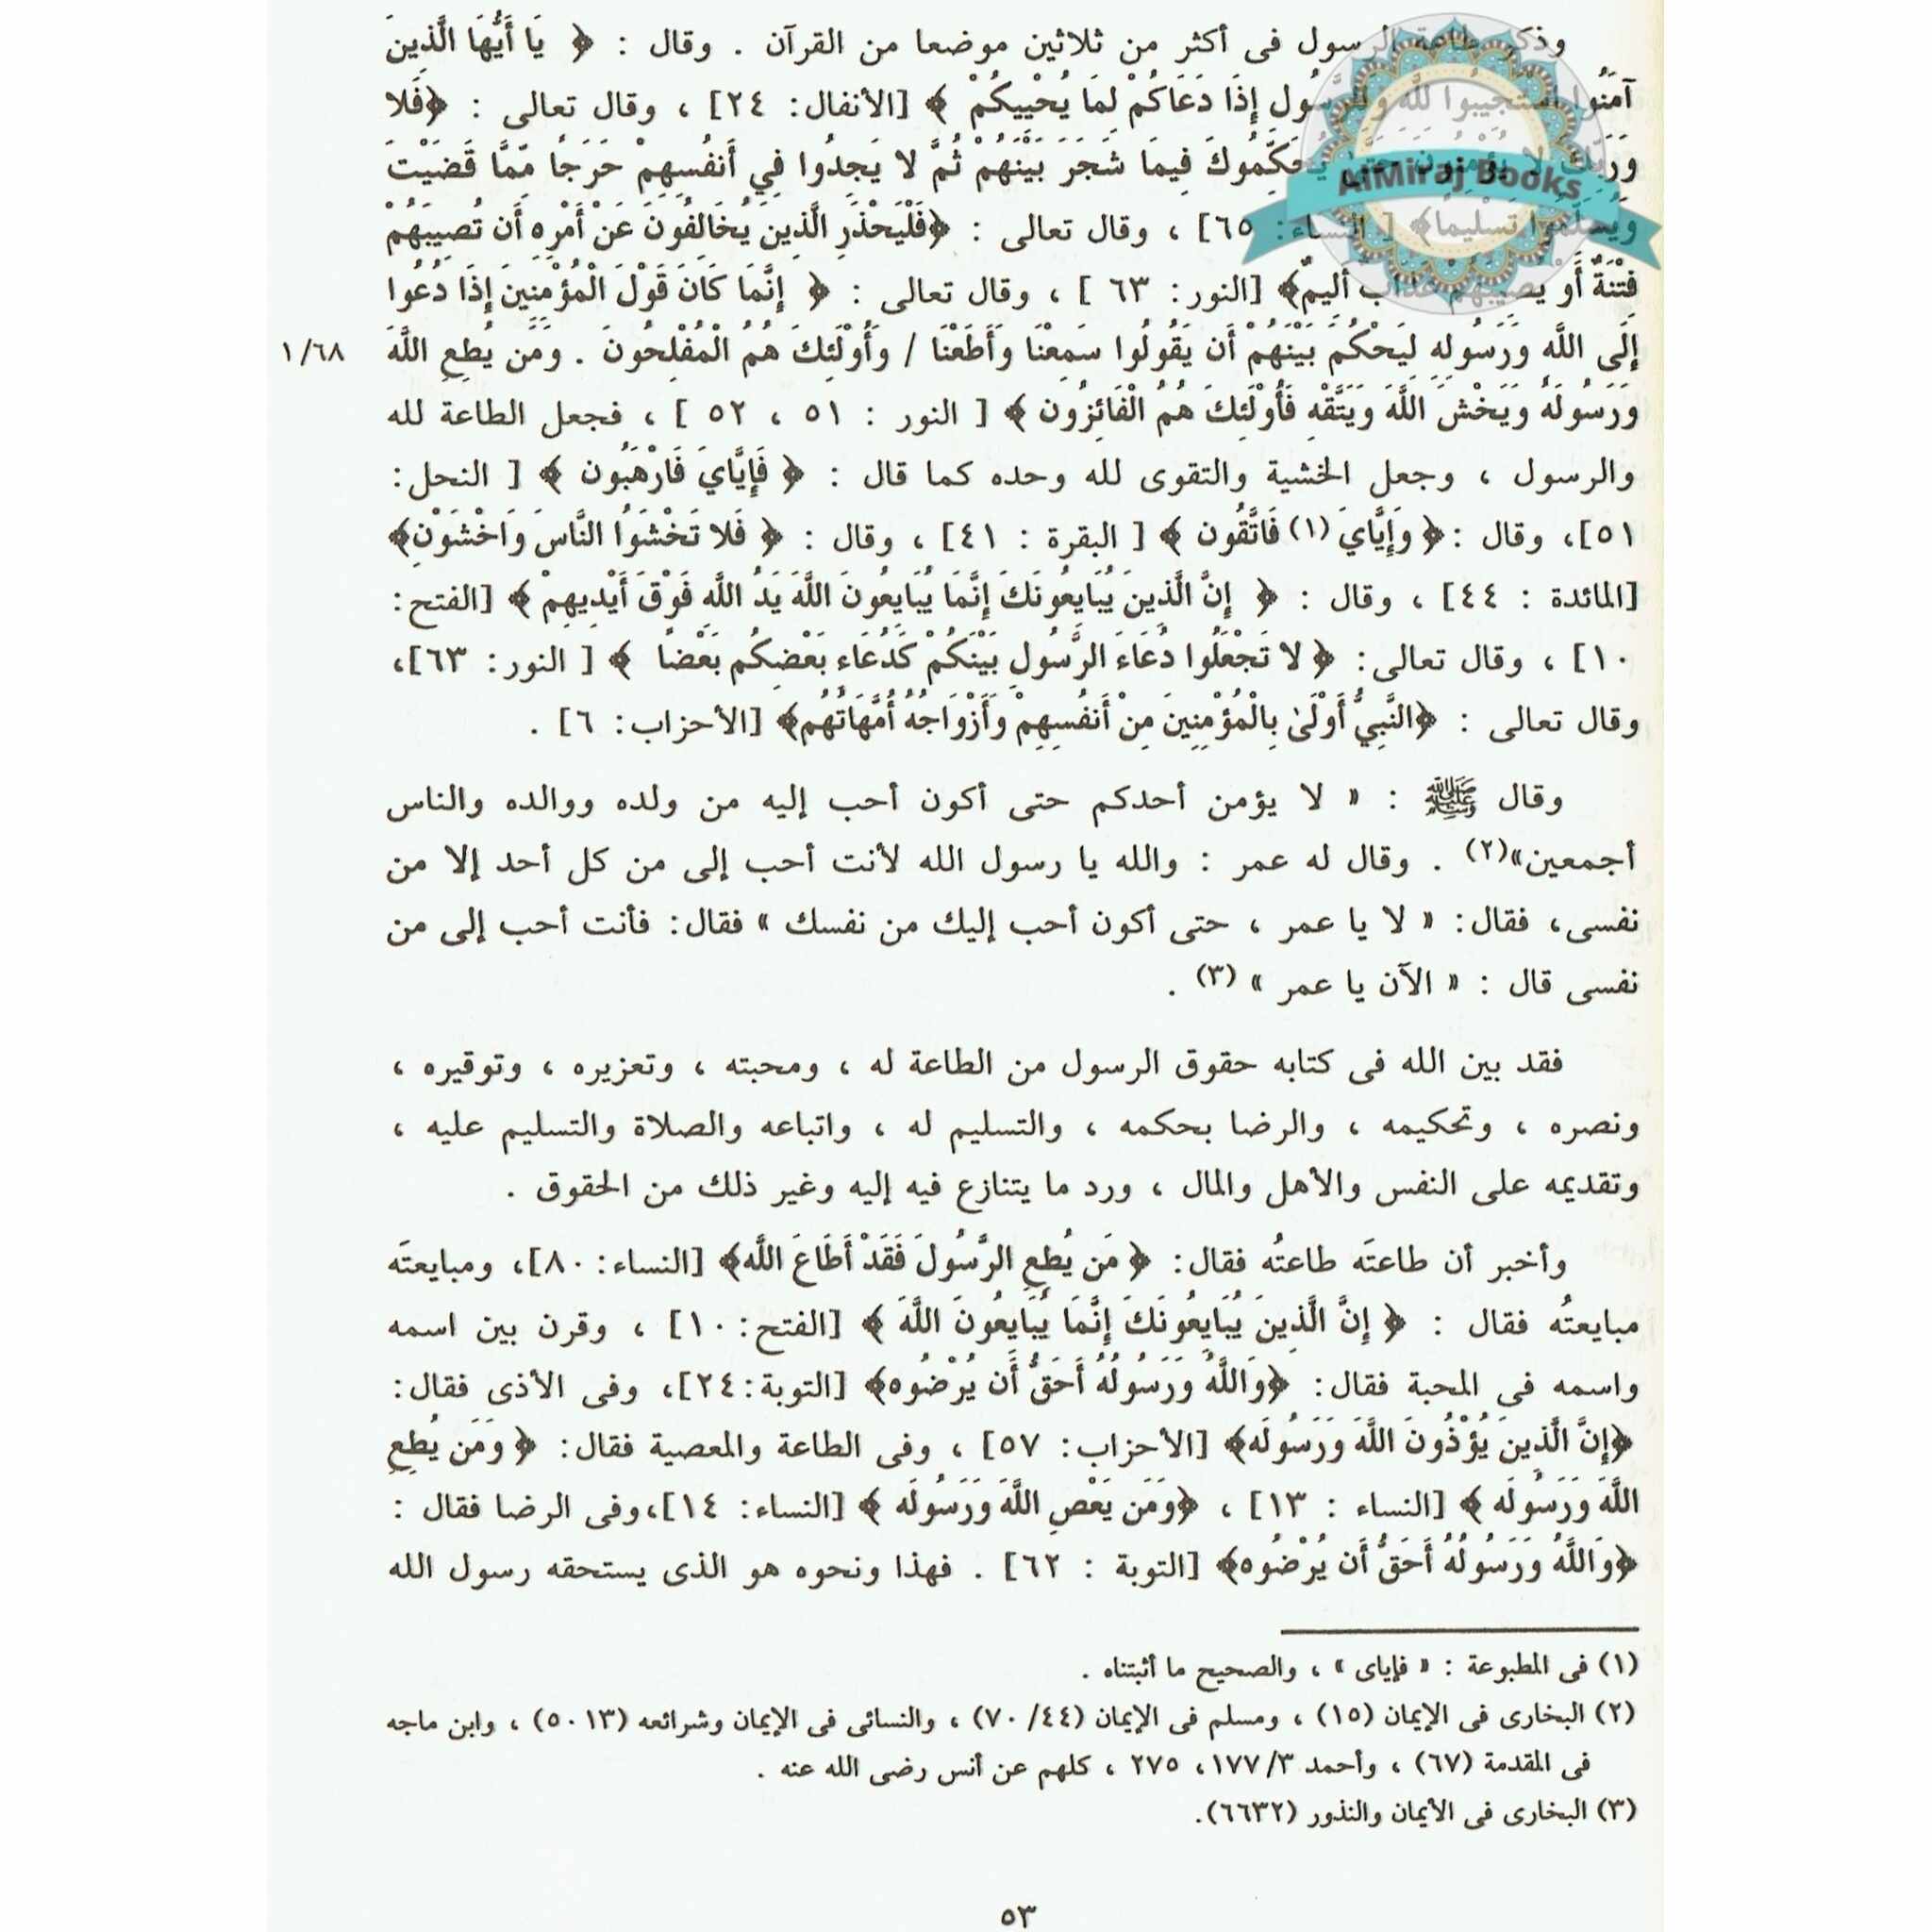 وذكر طاعة الرسول فى أكثر من ثلاثين موضعا من القرآن . وقال : ﴿ يَا أَيُّهَا الَّذِينَ
آمَنُوا اسْتَجِيبُوا لِلَّهِ وَلِلرَّسُولِ إِذَا دَعَاكُمْ لِمَا يُحْيِيكُمْ ﴾ [الأنفال: ٢٤] ، وقال تعالى : ﴿فَلا
وَرَبِّكَ لا يُؤْمِنُونَ حَتَّىٰ يُحَكِّمُوكَ فِيمَا شَجَرَ بَيْنَهُمْ ثُمَّ لا يَجِدُوا فِي أَنفُسِهِمْ حَرَجًا مِّمَّا قَضَيْتَ
وَيُسَلِّمُوا تَسْلِيمًا﴾ [ النساء: ٦٥] ، وقال تعالى : ﴿فَلْيَحْذَرِ الَّذِينَ يُخَالِفُونَ عَنْ أَمْرِهِ أَن تُصِيبَهُمْ
فِتْنَةٌ أَوْ يُصِيبَهُمْ عَذَابٌ أَلِيمٌ﴾ [النور: ٦٣ ] ، وقال تعالى : ﴿ إِنَّمَا كَانَ قَوْلَ الْمُؤْمِنِينَ إِذَا دُعُوا
إِلَى اللَّهِ وَرَسُولِهِ لِيَحْكُمَ بَيْنَهُمْ أَن يَقُولُوا سَمِعْنَا وَأَطَعْنَا / وَأُوْلَئِكَ هُمُ الْمُفْلِحُونَ . وَمَن يُطِعِ اللَّهَ ١/٦٨
وَرَسُولَهُ وَيَخْشَ اللَّهَ وَيَتَّقْهِ فَأُوْلَئِكَ هُمُ الْفَائِزُون ﴾ [ النور : ٥١ ، ٥٢ ] ، فجعل الطاعة لله
والرسول ، وجعل الخشية والتقوى لله وحده كما قال : ﴿ فَإِيَّايَ فَارْهَبُون ﴾ [ النحل:
٥١]، وقال :﴿ وَإِيَّايَ (١) فَاتَّقُون ﴾ [ البقرة : ٤١] ، وقال : ﴿ فَلا تَخْشَوُا النَّاسَ وَاخْشَوْنِ﴾
[المائدة : ٤٤] ، وقال : ﴿ إِنَّ الَّذِينَ يُبَايِعُونَكَ إِنَّمَا يُبَايِعُونَ اللَّهَ يَدُ اللَّهِ فَوْقَ أَيْدِيهِمْ ﴾ [الفتح:
١٠] ، وقال تعالى: ﴿ لا تَجْعَلُوا دُعَاءَ الرَّسُولِ بَيْنَكُمْ كَدُعَاءِ بَعْضِكُم بَعْضًا ﴾ [ النور: ٦٣]،
وقال تعالى : ﴿النَّبِيُّ أَوْلَىٰ بِالْمُؤْمِنِينَ مِنْ أَنفُسِهِمْ وَأَزْوَاجُهُ أُمَّهَاتُهُم﴾ [الأحزاب: ٦] .
وقال ﷺ : « لا يؤمن أحدكم حتى أكون أحب إليه من ولده ووالده والناس
أجمعين»(٢) . وقال له عمر : والله يا رسول الله لأنت أحب إلى من كل أحد إلا من
نفسى، فقال: « لا يا عمر ، حتى أكون أحب إليك من نفسك » فقال: فأنت أحب إلى من
نفسى قال : « الآن يا عمر » (٣) .
فقد بين الله فى كتابه حقوق الرسول من الطاعة له ، ومحبته ، وتعزيره ، وتوقيره ،
ونصره ، وتحكيمه ، والرضا بحكمه ، والتسليم له ، واتباعه والصلاة والتسليم عليه ،
وتقديمه على النفس والأهل والمال ، ورد ما يتنازع فيه إليه وغير ذلك من الحقوق .
وأخبر أن طاعتَه طاعتُه فقال: ﴿ مَن يُطِعِ الرَّسُولَ فَقَدْ أَطَاعَ اللَّه﴾ [النساء: ٨٠]، ومبايعتَه
مبايعتُه فقال : ﴿ إِنَّ الَّذِينَ يُبَايِعُونَكَ إِنَّمَا يُبَايِعُونَ اللَّهَ ﴾ [الفتح: ١٠] ، وقرن بين اسمه
واسمه فى المحبة فقال: ﴿وَاللَّهُ وَرَسُولُهُ أَحَقُّ أَن يُرْضُوه﴾ [التوبة:٢٤]، وفى الأذى فقال:
﴿إِنَّ الَّذِينَ يُؤْذُونَ اللَّهَ وَرَسُولَه﴾ [الأحزاب: ٥٧] ، وفى الطاعة والمعصية فقال: ﴿ وَمَن يُطِعِ
اللَّهَ وَرَسُولَه ﴾ [النساء : ١٣] ، ﴿وَمَن يَعْصِ اللَّهَ وَرَسُولَه ﴾ [النساء: ١٤]،وفى الرضا فقال :
﴿وَاللَّهُ وَرَسُولُهُ أَحَقُّ أَن يُرْضُوه﴾ [التوبة : ٦٢] . فهذا ونحوه هو الذى يستحقه رسول الله
(١) فى المطبوعة : « فإياى » ، والصحيح ما أثبتناه .
(٢) البخارى فى الإيمان (١٥) ، ومسلم فى الإيمان (٤٤/ ٧٠) ، والنسائى فى الإيمان وشرائعه (٥٠١٣) ، وابن ماجه
فى المقدمة (٦٧) ، وأحمد ٣/ ١٧٧، ٢٧٥ ، كلهم عن أنس رضى الله عنه .
(٣) البخارى فى الأيمان والنذور (٦٦٣٢).
٥٣
AlMiraj Books